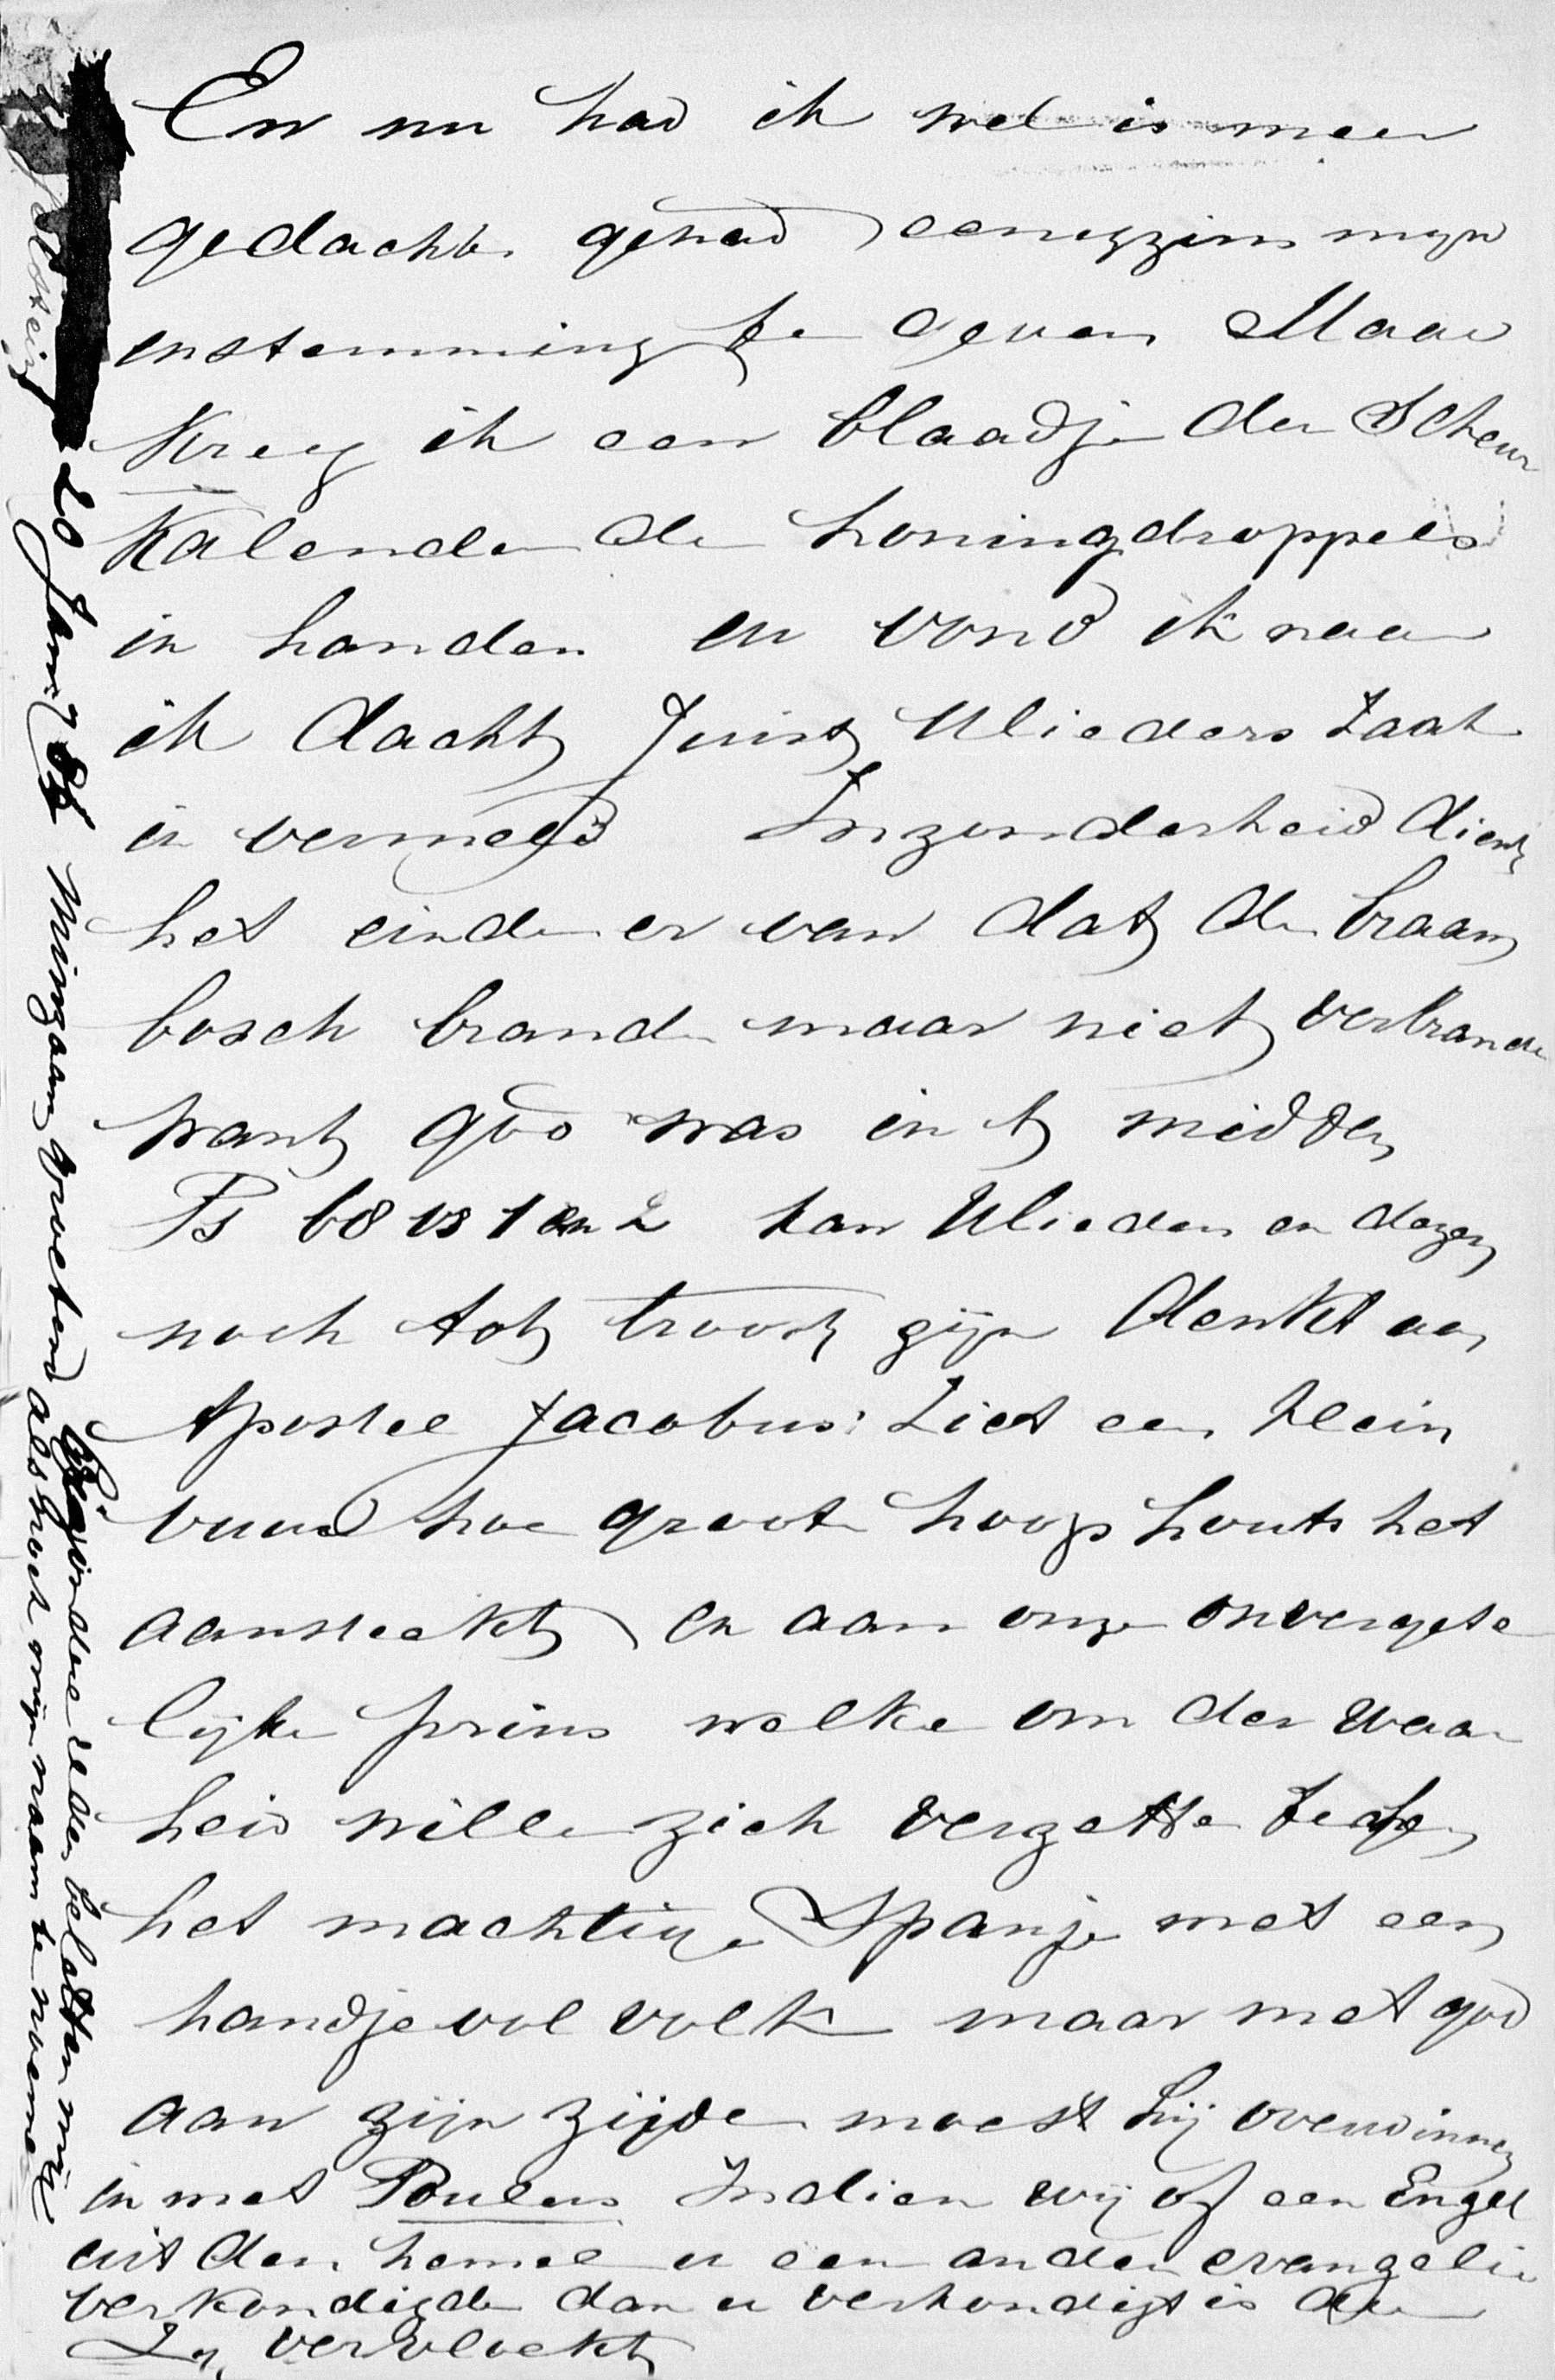 En nu had ik wel is meer
gedachte gehad eenigzins myn
enstemming te geven Maar
Kreeg ik een blaadje der Scheur
Kalender de honingdroppels
in handen en vond ik naar
ik dacht Juist Ulieders Zaak
in vermeld Inzonderheid dient
het einde er van dat de braam
bosch brande maar niet verbrande
want god was in t midden
Ps 68 vs 1 en 2 kan Ulieden in dezen
noch tot troost zijn denkt aan
Apostel Jacobus: Ziet een klein
vuur hoe groote hoop houts het
aansteekt en aan onze onvergete
lijke prins welke om der waar
heid wille zich verzette tegen
het machtige Spanje met een
handje vol volk maar met god
aan zijn zijde moest hij overwinnen
en met Poulus Indien wij of een Engel
uit den hemel u een ander evangelie
verkondigde dan u verkondigt is die
Zy vervloekt
20 Jan 87 Minzaam groetend
Bijzondere reden beletten mij
als noch mijn naam te noemen